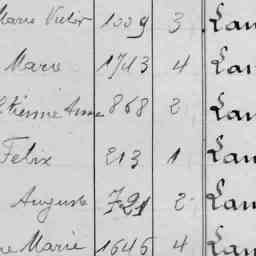 Marie Victor 1009 3 Lau
Marie 1743 4 Lau
Etienne Anne 868 2 Lau
Felix 213 1 Lau
Auguste 721 2 Lau
Marie 1646 4 Lau